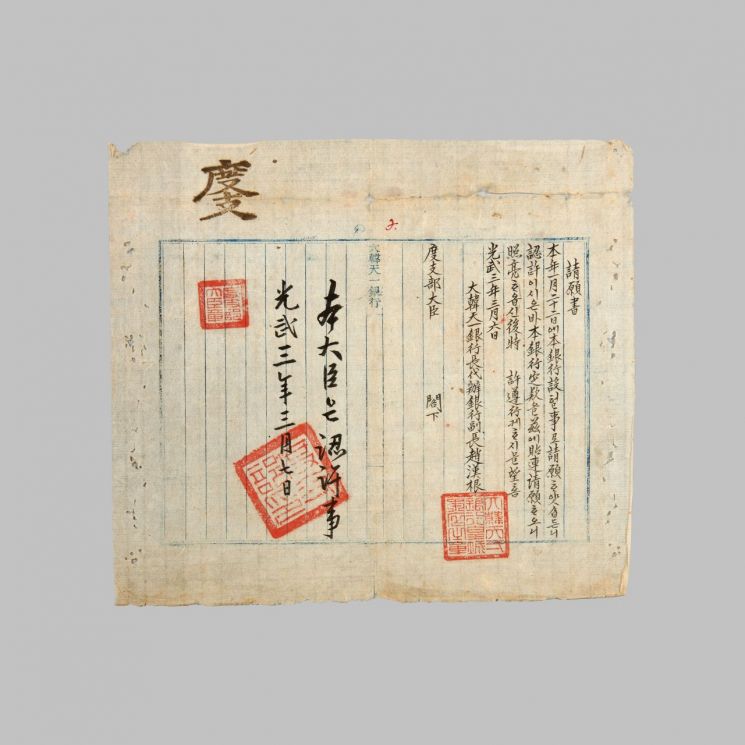 度支
請願書
本年一月二十二日에本銀行設헐事로請願ᄒᆞ얏습든니
認許이시온바本銀行定款을玆에貼連請願ᄒᆞ오니
照亮ᄒᆞ옵신後特 許遵行케ᄒᆞ시믈望홈
光武三年三月六日
大韓天一銀行長代辦銀行副長趙漢根
度支部大臣 閣下
大韓天一銀行
本大臣은認許事
光武三年三月七日